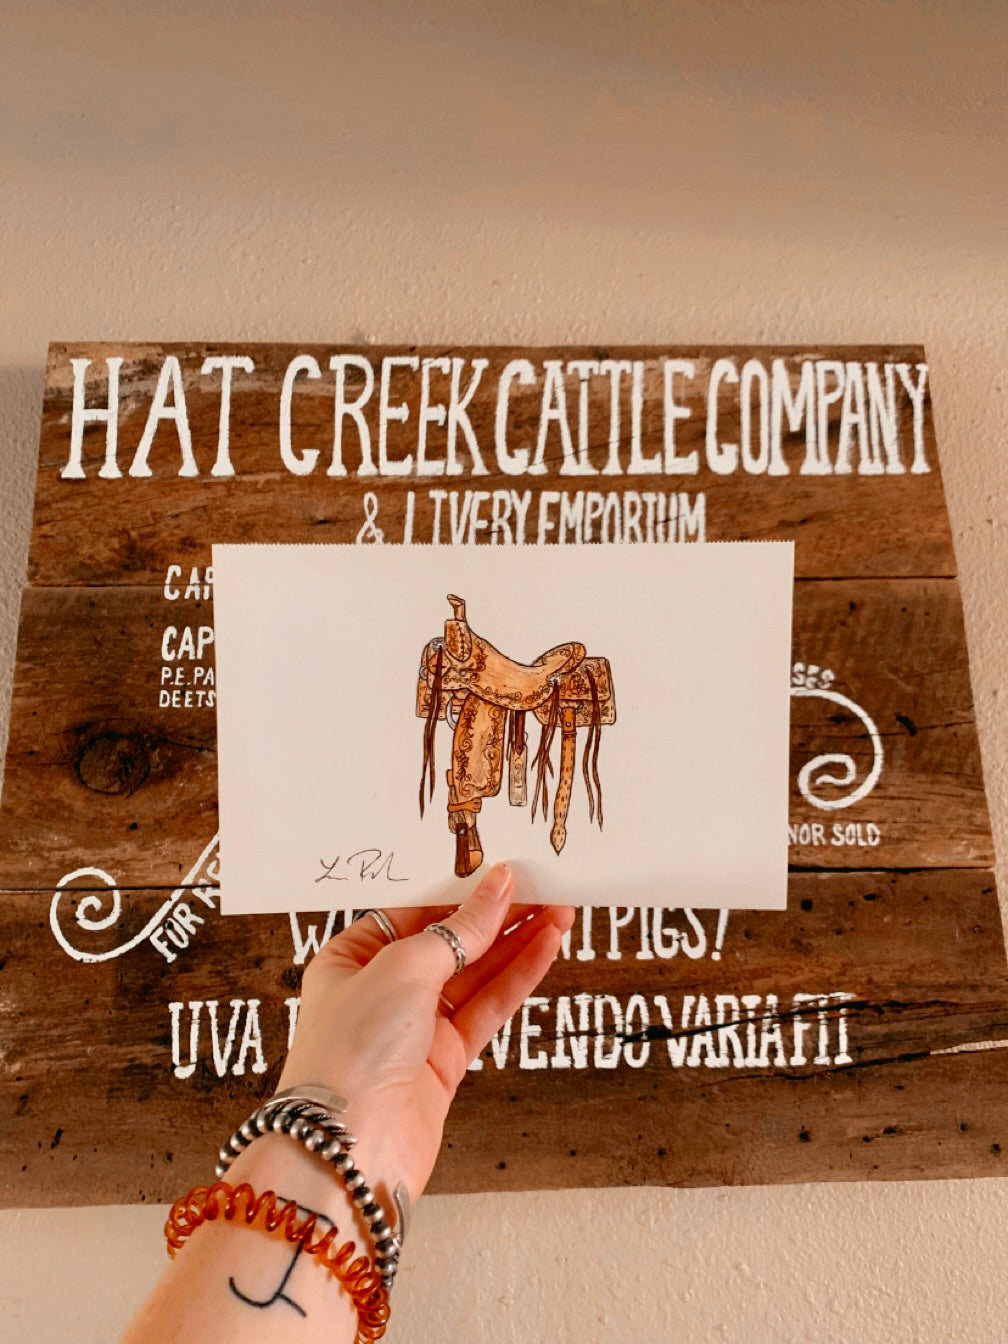 HAT CREEK CATTLE COMPANY
& LIVERY EMPORIUM
CAP
CAP
P.E.PA
DEETS
SES
NOR SOLD
FOR
PIGS!
UVA
VENDO VARIA FIT